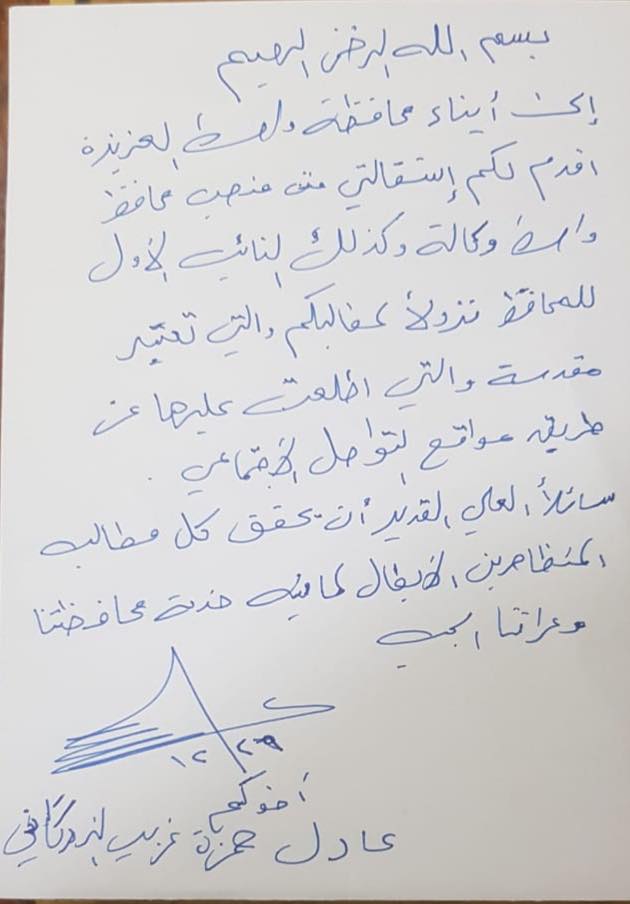 بسم الله الرحمن الرحيم
إلى أبناء محافظة واسط العزيزة
اقدم لكم إستقالتي من منصب محافظ
واسط وكالة وكذلك النائب الأول
للمحافظ نزولاً لمطالبكم والتي تعتبر
مقدسة والتي اطلعت عليها عن
طريق مواقع التواصل الاجتماعي .
سائلاً العلي القدير أن يحقق كل مطالب
المتظاهرين الأبطال لما فيه خدمة محافظتنا
وعراقنا الحبيب
١٢ ٢٩
أخوكم
عادل حمزة غريب الزركاني